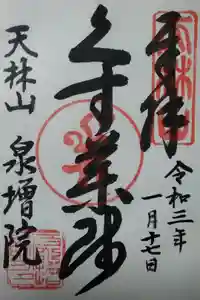 奉拝
令和三年
一月十七日
薬師
天林山
泉増院